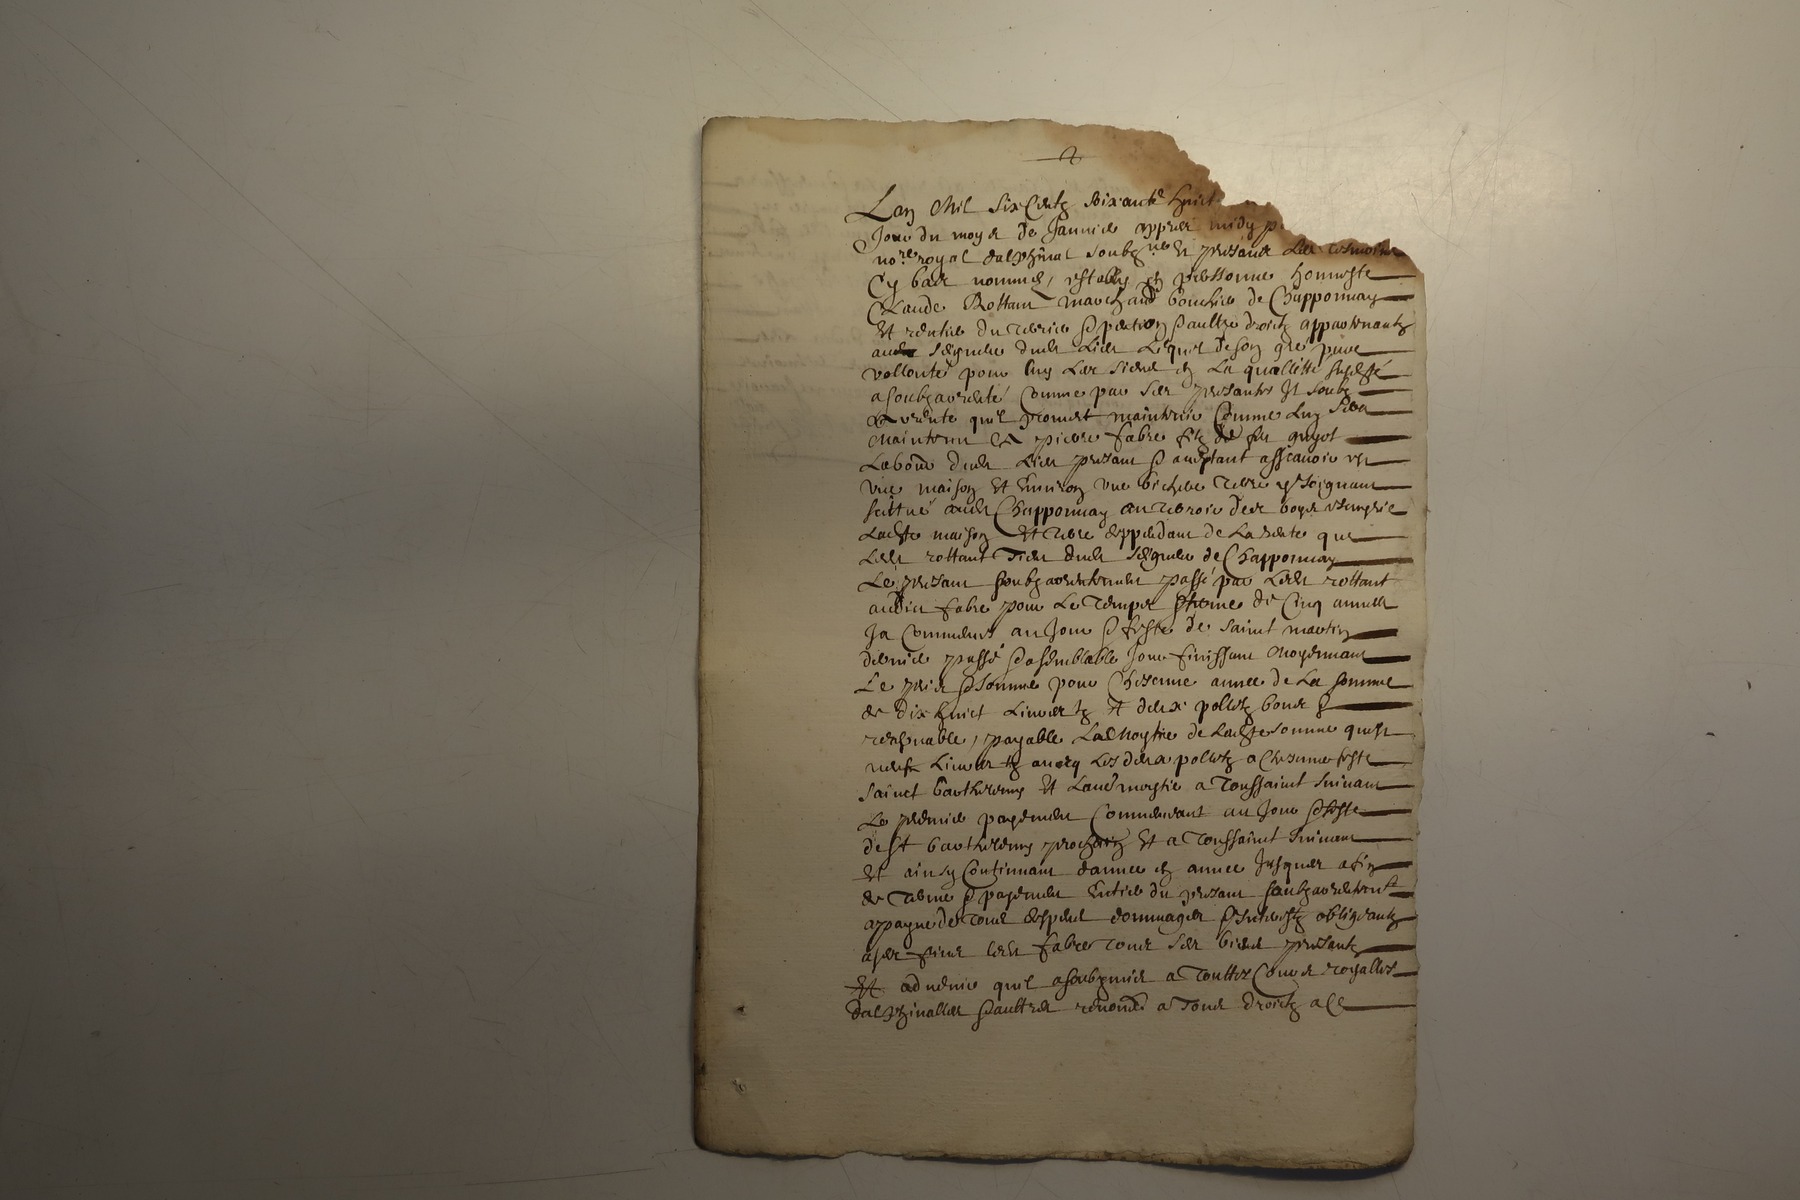 Lan Mil Six Centz Soixante huict
Jour du moys de Janvier appres midy p
no.re royal dalphinal soubz.ne et presantz les tesmoins
Cy bas nommes, estably en personne honneste
Claude Rottant marchand bouchier de Chapponnay
Et rentier du terrier & pention & aultre droictz appartenantz
au seigneur dudit lieu Lequel de son gre pure
vollonté pour luy les siens en la quallitté susdte
a soubzarrenté comme par ses presantes Il soubz
arrente quil promet maintenir comme luy sera
maintenu A pierre fabre filz de feu guyot
Labour dudit lieu presant & aceptant assavoir est
une maison Et Environ une bicheree terre y Joignant
scittué audit Chapponnay au terroir des boyes
Ladte maison Et terre deppendant de la rente que
ledit rottant tient dudit seigneur de Chapponnay
Le presant soubzarrentement passé par ledit rottant
audit fabre pour le temps & terme de Cinq annees
Ja commencé au Jour & feste de saint martin
dernier passé & a semblable Jour finissant moyennant
Le prix & somme pour chescune annee de la somme
de dix huict Livres tz et deux polletz bons &
resonnable, payable La moytie de ladte somme quest
neuf Livres tz avecq les deux polletz a chescune feste
sainct barthelemy Et laue moytie a Toussainct suivant
Le premier payement Commencant au Jour & feste
de St barthelemy prochain Et a Toussainct suivant
Et ainsy Continuant dannee en annee Jusques a fin
de terme & payement Entier du presant soubzarrentement
a payne de tous despens dommages & Interestz obligeantz
a ses fins ledit fabre tous ses biens presantz
Et advenir quil a soubzmis a Touttes Cours royalles
dalphinalles & aultres renoncé a Tous droictz a ce